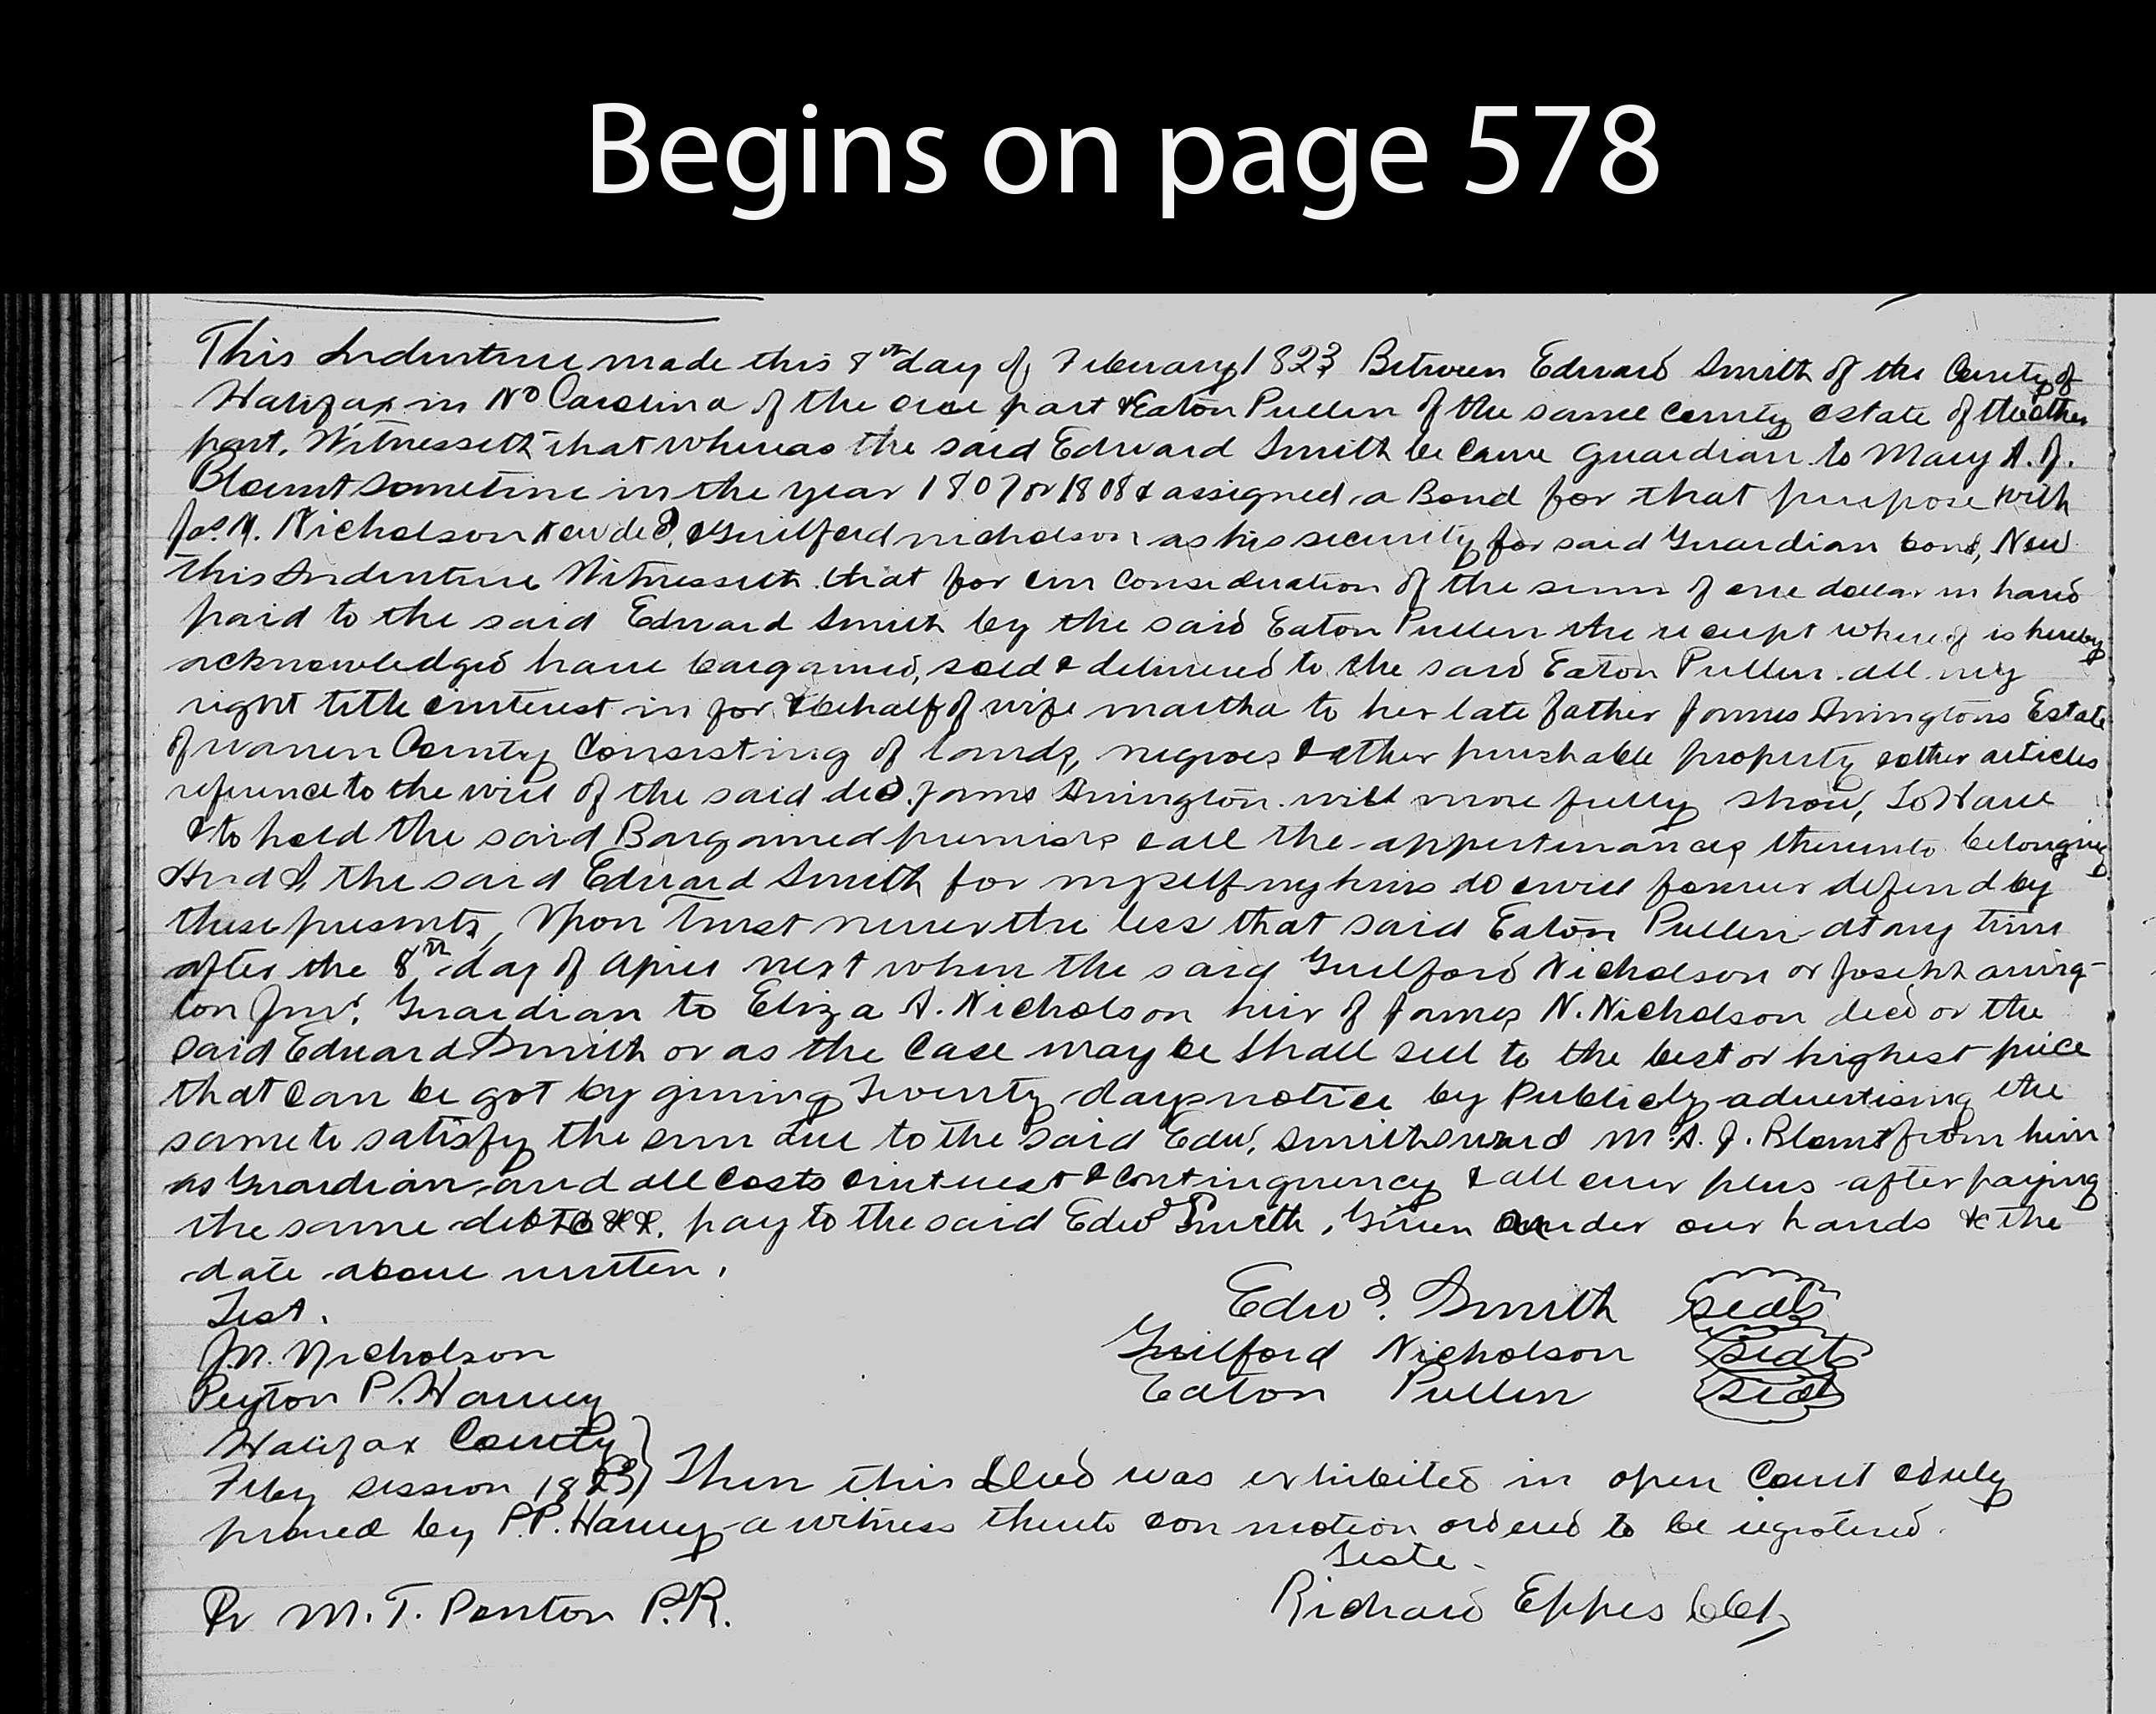 Begins on page 578
This Indenture made this 8th day of February 1823 Between Edward Smith of the County of
Halifax in No Carolina of the one part & Eaton Pullen of the same county & state of the other
part. Witnesseth that whereas the said Edward Smith became Guardian to Mary A. J.
Blount sometime in the year 1807 or 1808 & assigned a Bond for that purpose with
Jas. N. Nicholson now decd. & Guilford nicholson as his security for said Guardian bond, Now
this Indenture Witnesseth that for & in Consideration of the sum of one dollar in hand
paid to the said Edward Smith by the said Eaton Pullen the receipt whereof is hereby
acknowledged have bargained, sold & delivered to the said Eaton Pullen all my
right title & interest in for & behalf of wife martha to her late father James Arringtons Estate
of warren County Consisting of lands, negroes & other perishable property & other articles
reference to the will of the said decd. James Arrington will more fully show, To Have
& to hold the said Bargained premises & all the appertinances thereunto belonging
And I the said Edward Smith for myself my heirs do & will forever defend by
these presents, Upon Trust never the less that said Eaton Pullen at any time
after the 8th day of April next when the said Guilford Nicholson or Joseph arring-
ton Junr. Guardian to Eliza A. Nicholson heir of James N. Nicholson decd or the
said Edward Smith or as the Case may be Shall sell to the best or highest price
that Can be got by giving Twenty days notice by Publicly advertising the
same to satisfy the sum due to the said Edw. Smiths ward M. A. J. Blount from him
as Guardian and all Costs & interest & Contingency & all over plus after paying
the same debts &&. pay to the said Edwd Smith, Given under our hands & the
date above written.
Test.
J.N. Nicholson
Peyton P. Harvey
Edwd. Smith seal
Guilford Nicholson seal
Eaton Pullen seal
Halifax County
Feby session 1823 Then this Deed was exhibited in open Court & duly
proved by P.P. Harvey a witness thereto & on motion ordered to be registered.
Teste
Richard Eppes Clk
Pr M. T. Ponton P.R.